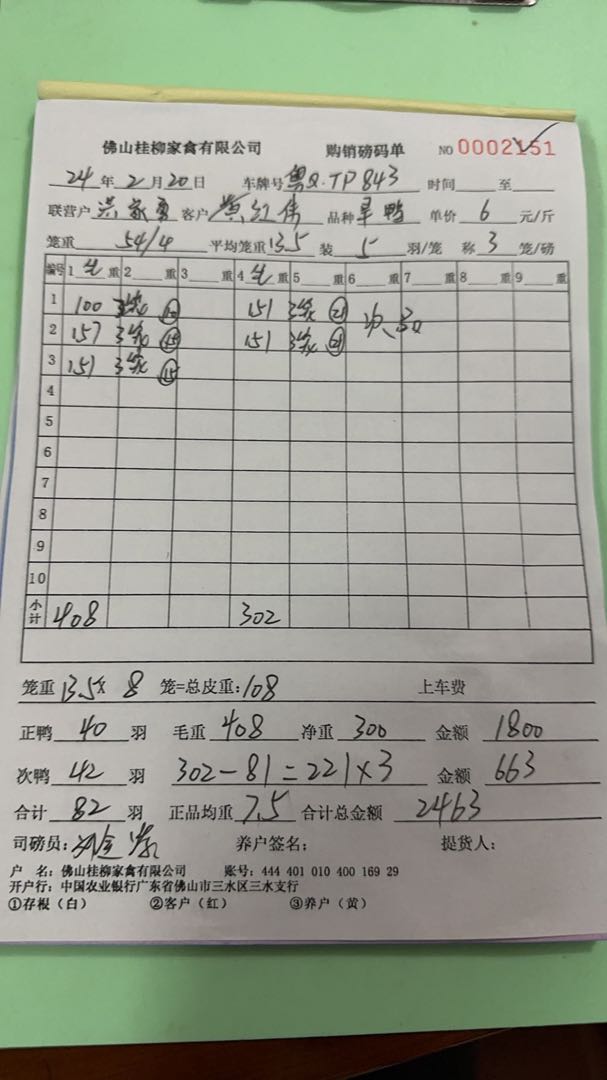 佛山桂柳家禽有限公司 购销磅码单 NO 0002151
24 年 2 月 20 日 车牌号 粤Q·TP843 时间 至
联营户 客户 黄红伟 品种 旱鸭 单价 6 元/斤
笼重 54/4 平均笼重 13.5 装 5 羽/笼 称 3 笼/磅
编号 1 生 重 2 重 3 重 4 生 重 5 重 6 重 7 重 8 重 9 重
1 100 151 3笼 21 次品
2 157 3笼 15 151 3笼 21
3 151 3笼 15
4
5
6
7
8
9
10
小计 408 302
笼重 13.5x 8 笼=总皮重: 108 上车费
正鸭 40 羽 毛重 408 净重 300 金额 1800
次鸭 42 羽 302-81=221x3 金额 663
合计 82 羽 正品均重 7.5 合计总金额 2463
司磅员: 养户签名: 提货人:
户 名: 佛山桂柳家禽有限公司 账号: 444 401 010 400 169 29
开户行: 中国农业银行广东省佛山市三水区三水支行
①存根(白) ②客户(红) ③养户(黄)